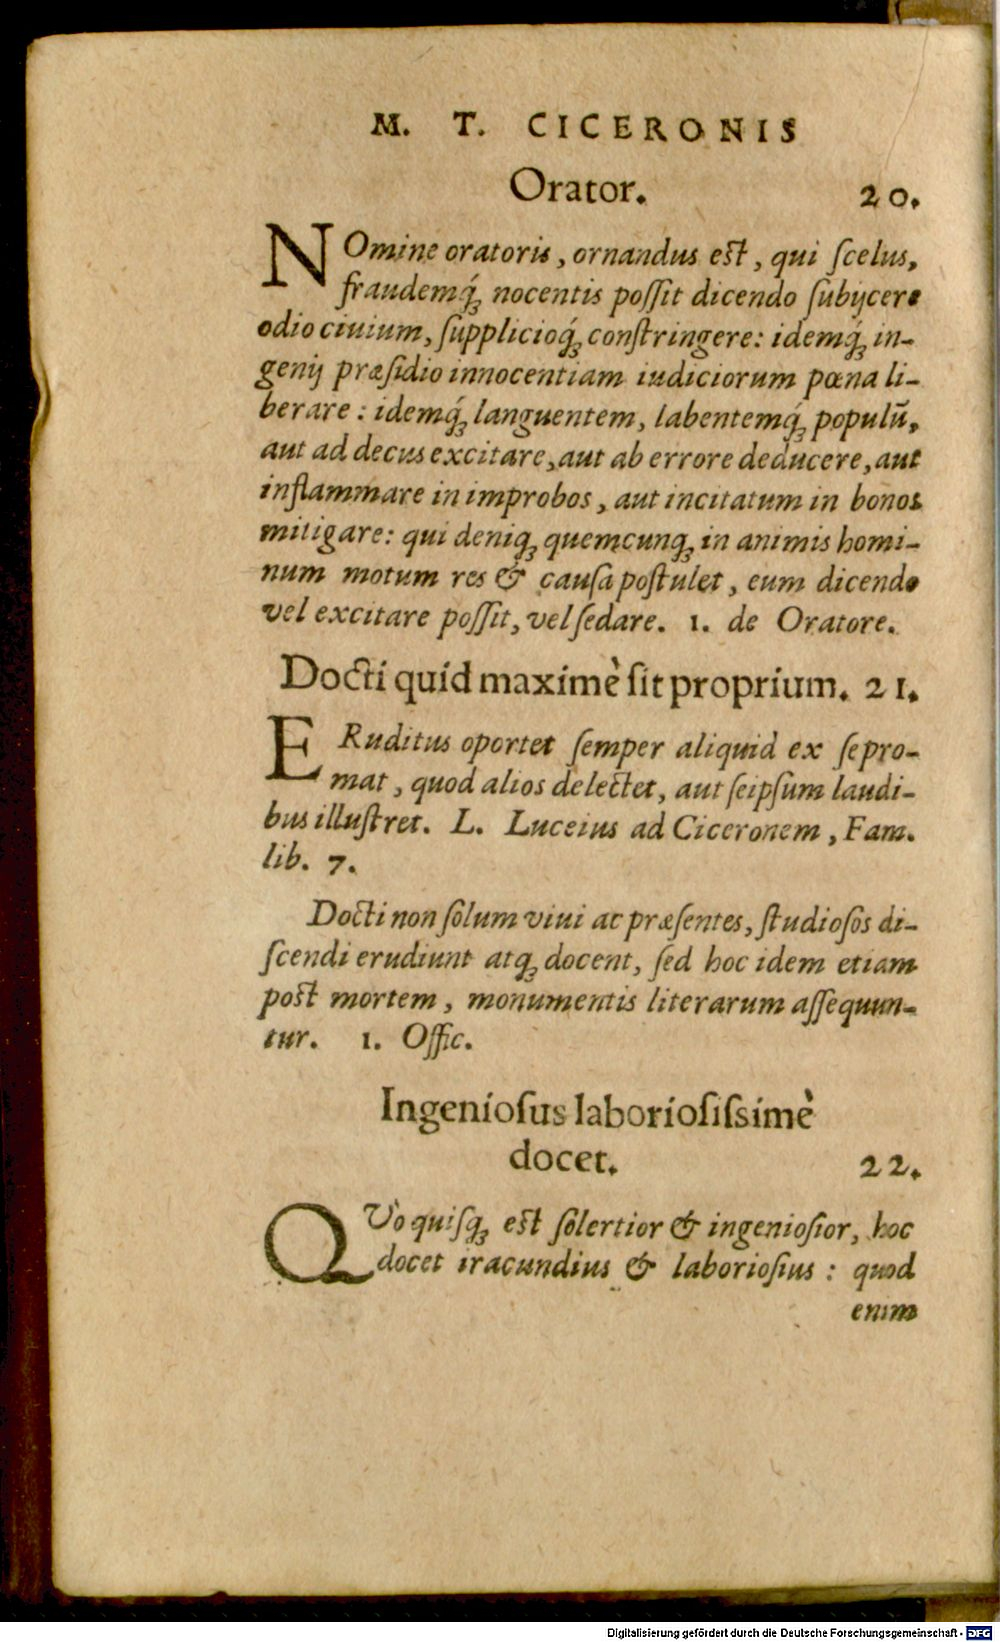 M. T. CICERONIS
Orator. 20.
NOmine oratoris, ornandus est, qui ſcelus,
fraudemq́ꝫ nocentis poſſit dicendo ſubijcere
odio ciuium, ſupplicioq́ꝫ conſtringere: idemq́ꝫ in-
genij præſidio innocentiam iudiciorum pœna li-
berare: idemq́ꝫ languentem, labentemq́ꝫ populū,
aut ad decus excitare, aut ab errore deducere, aut
inflammare in improbos, aut incitatum in bonos
mitigare: qui deniqꝫ quemcunqꝫ in animis homi-
num motum res & cauſa poſtulet, eum dicendo
vel excitare poſſit, vel ſedare. 1. de Oratore.
Docti quid maximè ſit proprium. 21.
ERuditus oportet ſemper aliquid ex ſe pro-
mat, quod alios delectet, aut ſeipſum laudi-
bus illuſtret. L. Luceius ad Ciceronem, Fam.
lib. 7.
Docti non ſolum viui ac præſentes, ſtudioſos di-
ſcendi erudiunt atqꝫ docent, ſed hoc idem etiam
post mortem, monumentis literarum aſſequun-
tur. 1. Offic.
Ingenioſus laborioſiſsimè
docet. 22.
QVo quiſqꝫ est ſolertior & ingenioſior, hoc
docet iracundius & laborioſius: quod
enim
Digitalisierung gefördert durch die Deutsche Forschungsgemeinschaft - DFG